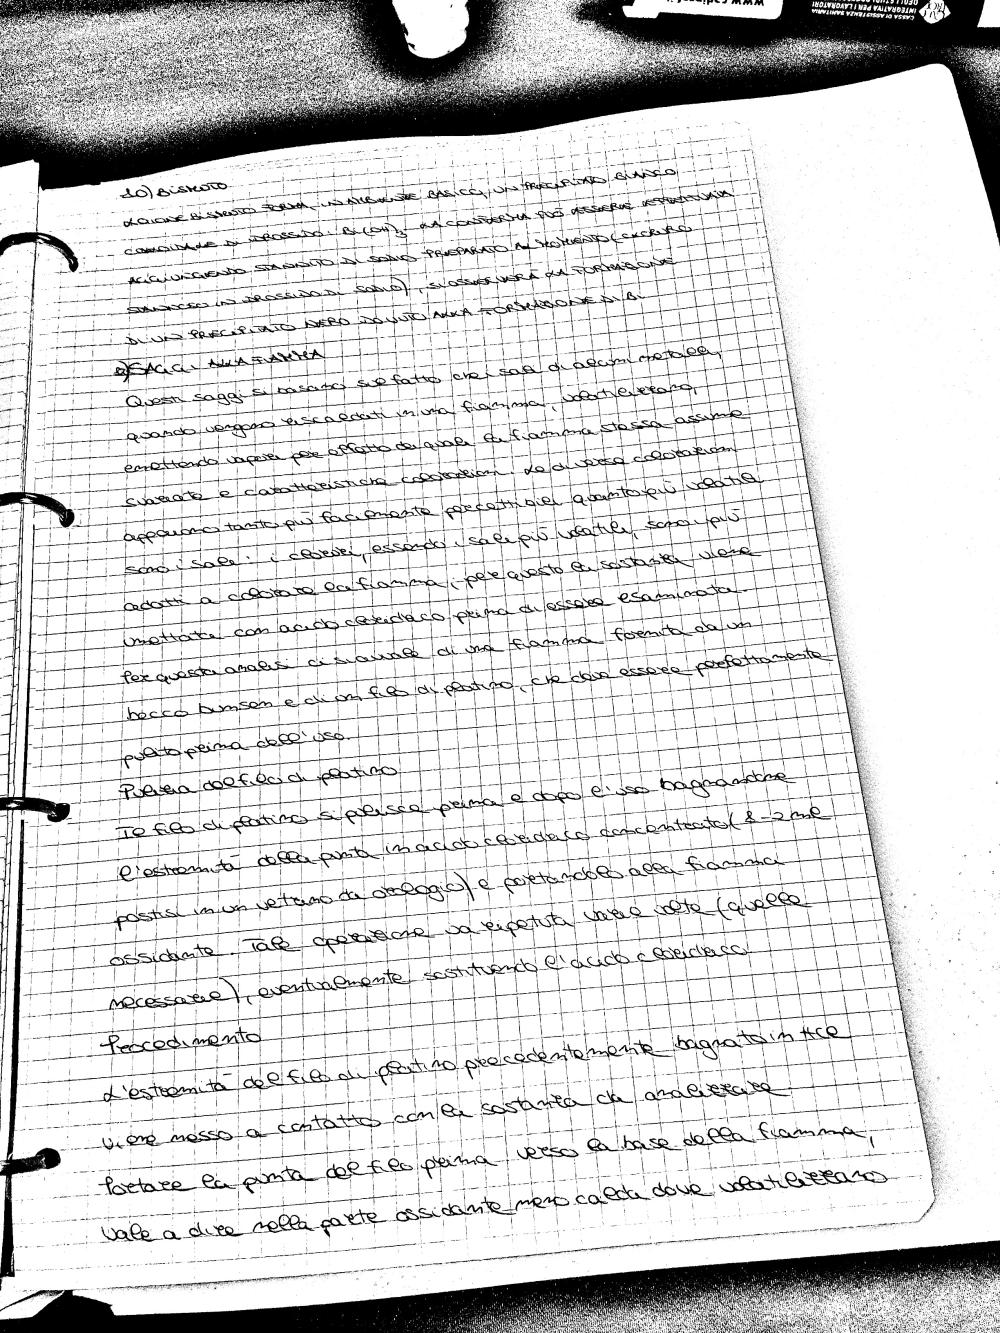 www.
CASSA DI ASSISTENZA SANITARIA
INTEGRATIVA PER I LAVORATORI
DEGLI STUDI
10) BISMUTO
LO IONE BISMUTO FORMA, IN AMBIENTE BASICO, UN PRECIPITATO BIANCO
DI IDROSSIDO Bi(OH)3. LA CONFERMA PUÒ ESSERE EFFETTUATA
AGGIUNGENDO STANNITO DI SODIO PREPARATO AL MOMENTO (CLORURO
STANNOSO IN IDROSSIDO DI SODIO), SI OSSERVERÀ LA FORMAZIONE
DI UN PRECIPITATO NERO DOVUTO ALLA FORMAZIONE DI Bi.
SAGGI ALLA FIAMMA
Questi saggi si basano sul fatto che i sali di alcuni metalli,
quando vengono riscaldati in una fiamma, volatilizzano,
emettendo vapori per effetto dei quali la fiamma stessa assume
svariate e caratteristiche colorazioni. Le diverse colorazioni
appaiono tanto più facilmente percettibili quanto più volatili
sono i sali: i cloruri, essendo i sali più volatili, sono i più
adatti a colorare la fiamma, per questo la sostanza viene
umettata con acido cloridrico prima di essere esaminata.
Per questa analisi ci si avvale di una fiamma fornita da un
becco bunsen e di un filo di platino, che deve essere perfettamente
pulito prima dell'uso.
Pulizia del filo di platino
Il filo di platino si pulisce prima e dopo l'uso bagnandone
l'estremità della punta in acido cloridrico concentrato (1-2 ml
postisi in un vetrino da orologio) e portandolo alla fiamma
ossidante. Tale operazione va ripetuta varie volte (quelle
necessarie), eventualmente sostituendo l'acido cloridrico
Procedimento
L'estremità del filo di platino precedentemente bagnato in HCl
viene messo a contatto con la sostanza da analizzare
Portare la punta del filo prima verso la base della fiamma,
vale a dire nella parte ossidante meno calda dove volatilizzano